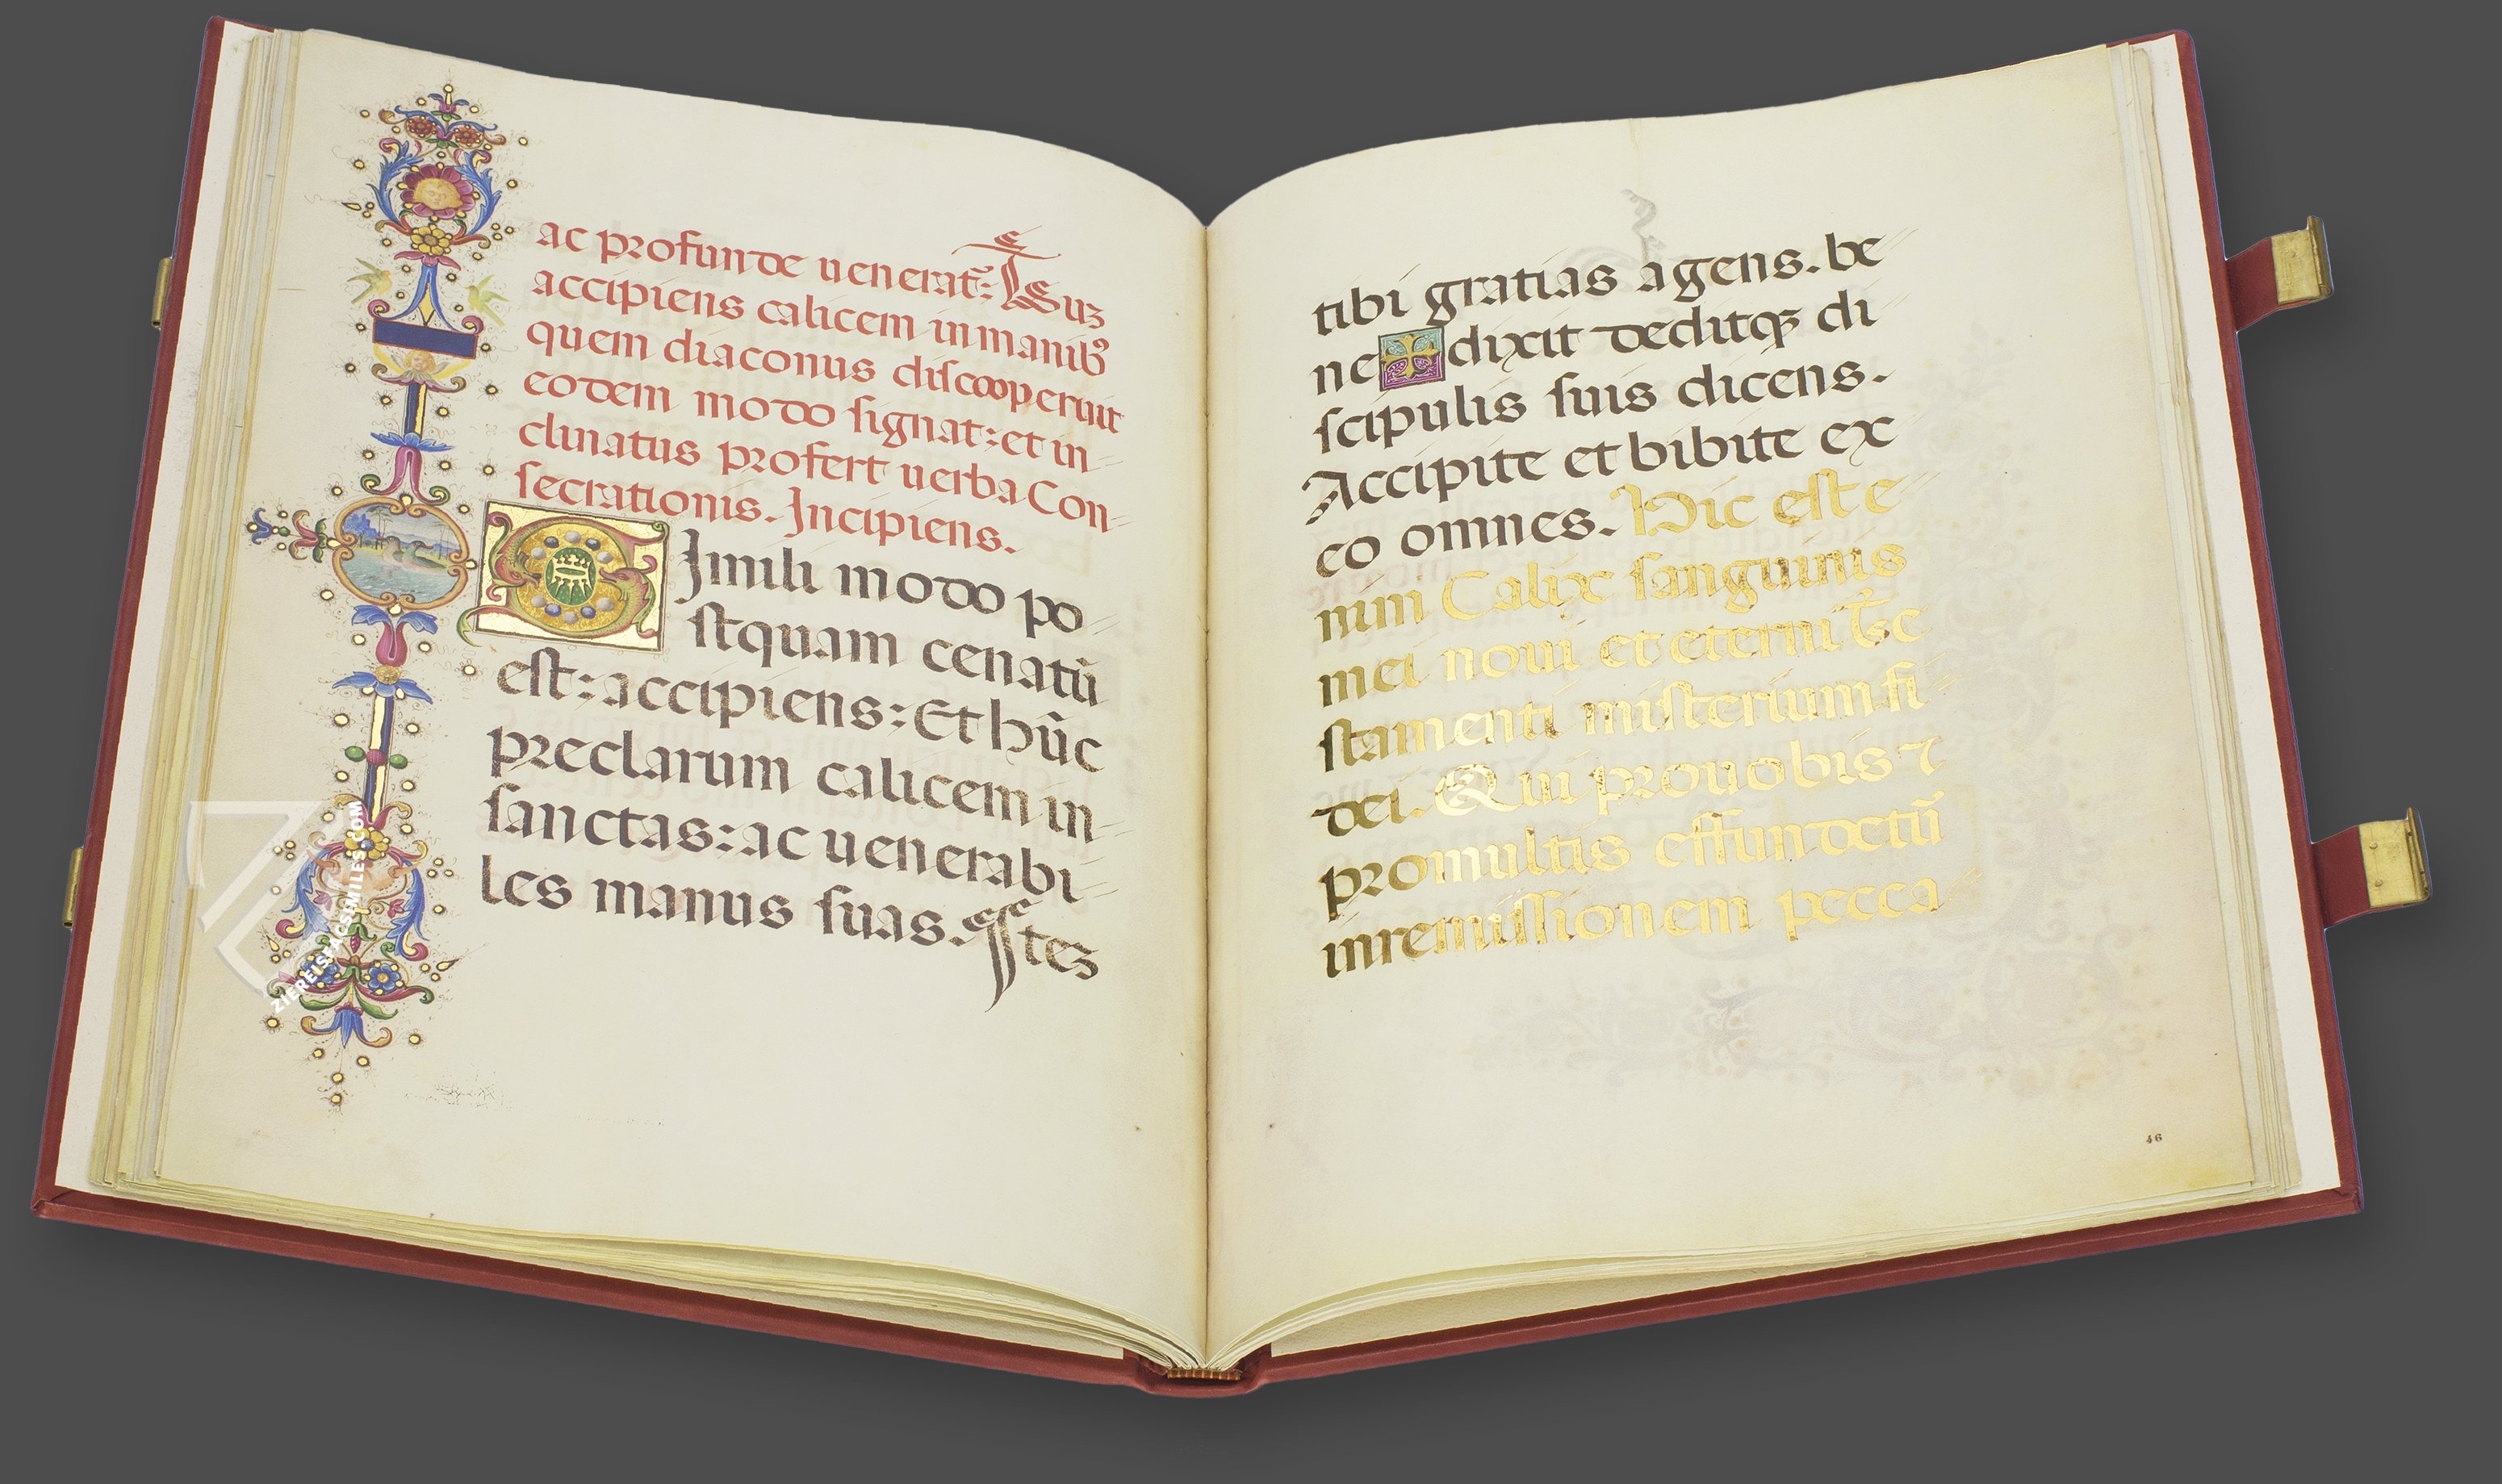 ac profunde uenerat̃: Tũ suꝫ
accipiens calicem in manibꝰ
quem diaconus discooperuit
eodem modo signat: et in
clinatus profert uerba Con-
secrationis. Incipiens.
Simili modo po
stquam cenatū
est: accipiens: Et hūc
preclarum calicem in
sanctas: ac uenerabi
les manus suas. Itez
tibi gratias agens. be
ne ✠ dixit deditqꝫ di
scipulis suis dicens.
Accipite et bibite ex
eo omnes. Hic est e
nim Calix sanguinis
mei noui et eterni te
stamenti misterium fi
dei. Qui pro uobis ⁊
pro multis effundetū
in remissionem pecca
46
ZIEREIS FACSIMILES.COM